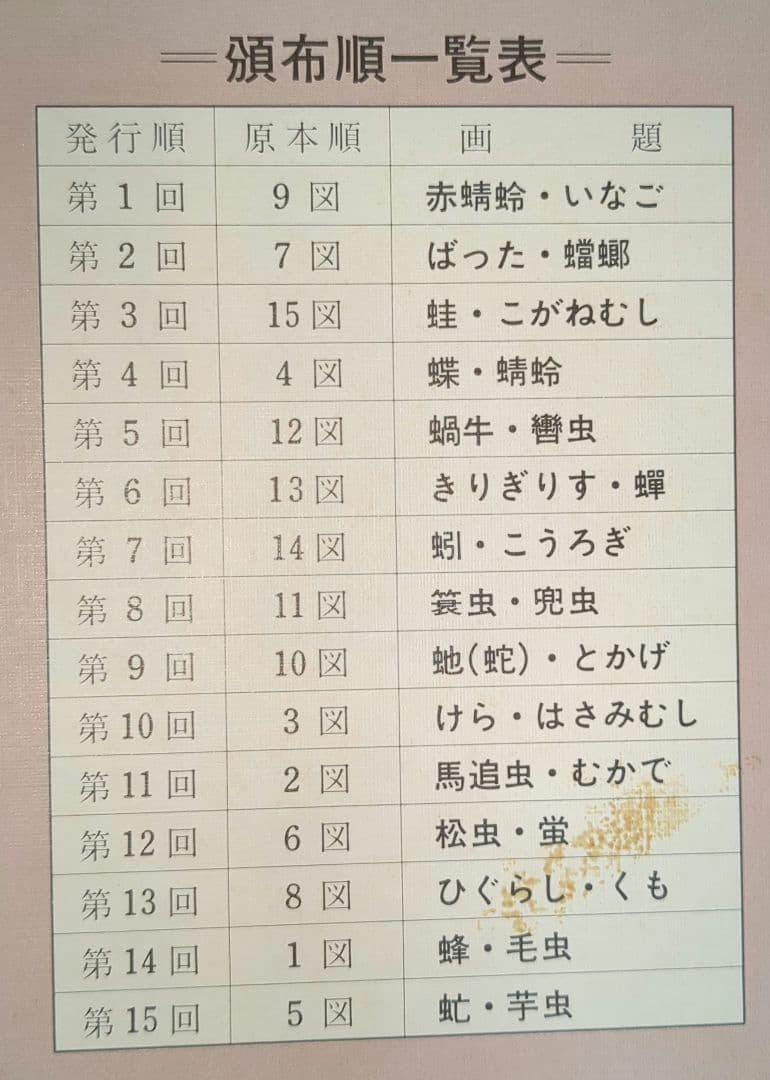 頒布順一覧表
発行順 原本順 画題
第1回 9図 赤蜻蛉・いなご
第2回 7図 ばった・蟷螂
第3回 15図 蛙・こがねむし
第4回 4図 蝶・蜻蛉
第5回 12図 蝸牛・轡虫
第6回 13図 きりぎりす・蟬
第7回 14図 蚓・こうろぎ
第8回 11図 簑虫・兜虫
第9回 10図 虵(蛇)・とかげ
第10回 3図 けら・はさみむし
第11回 2図 馬追虫・むかで
第12回 6図 松虫・蛍
第13回 8図 ひぐらし・くも
第14回 1図 蜂・毛虫
第15回 5図 虻・芋虫